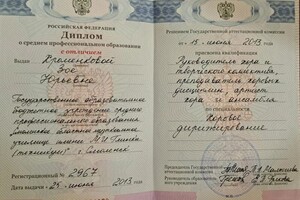 РОССИЙСКАЯ ФЕДЕРАЦИЯ
Диплом
о среднем профессиональном образовании
с отличием
Выдан Храменковой
Зое
Юрьевне
Государственное образовательное
бюджетное учреждение среднего
профессионального образования
училище имени М.И. Глинки
(техникум) г. Смоленск
Регистрационный № 2967
Дата выдачи 25 июня 2013 года
Решением Государственной аттестационной
комиссии
от 15 июня 2013 года
присвоена квалификация
Руководитель хора и
творческого коллектива,
преподаватель хоровых
дисциплин, артист
хора и ансамбля
по специальности
Хоровое
дирижирование
Председатель Государственной
аттестационной комиссии